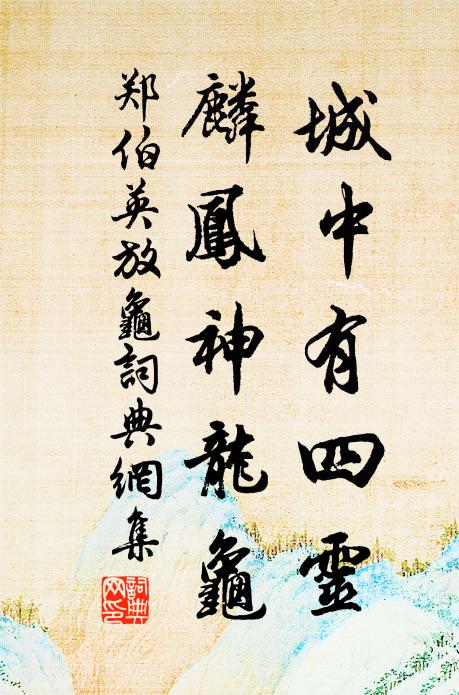 城中有四靈
麟鳳神龍龜
郑伯英放龜詞典網集
詞典